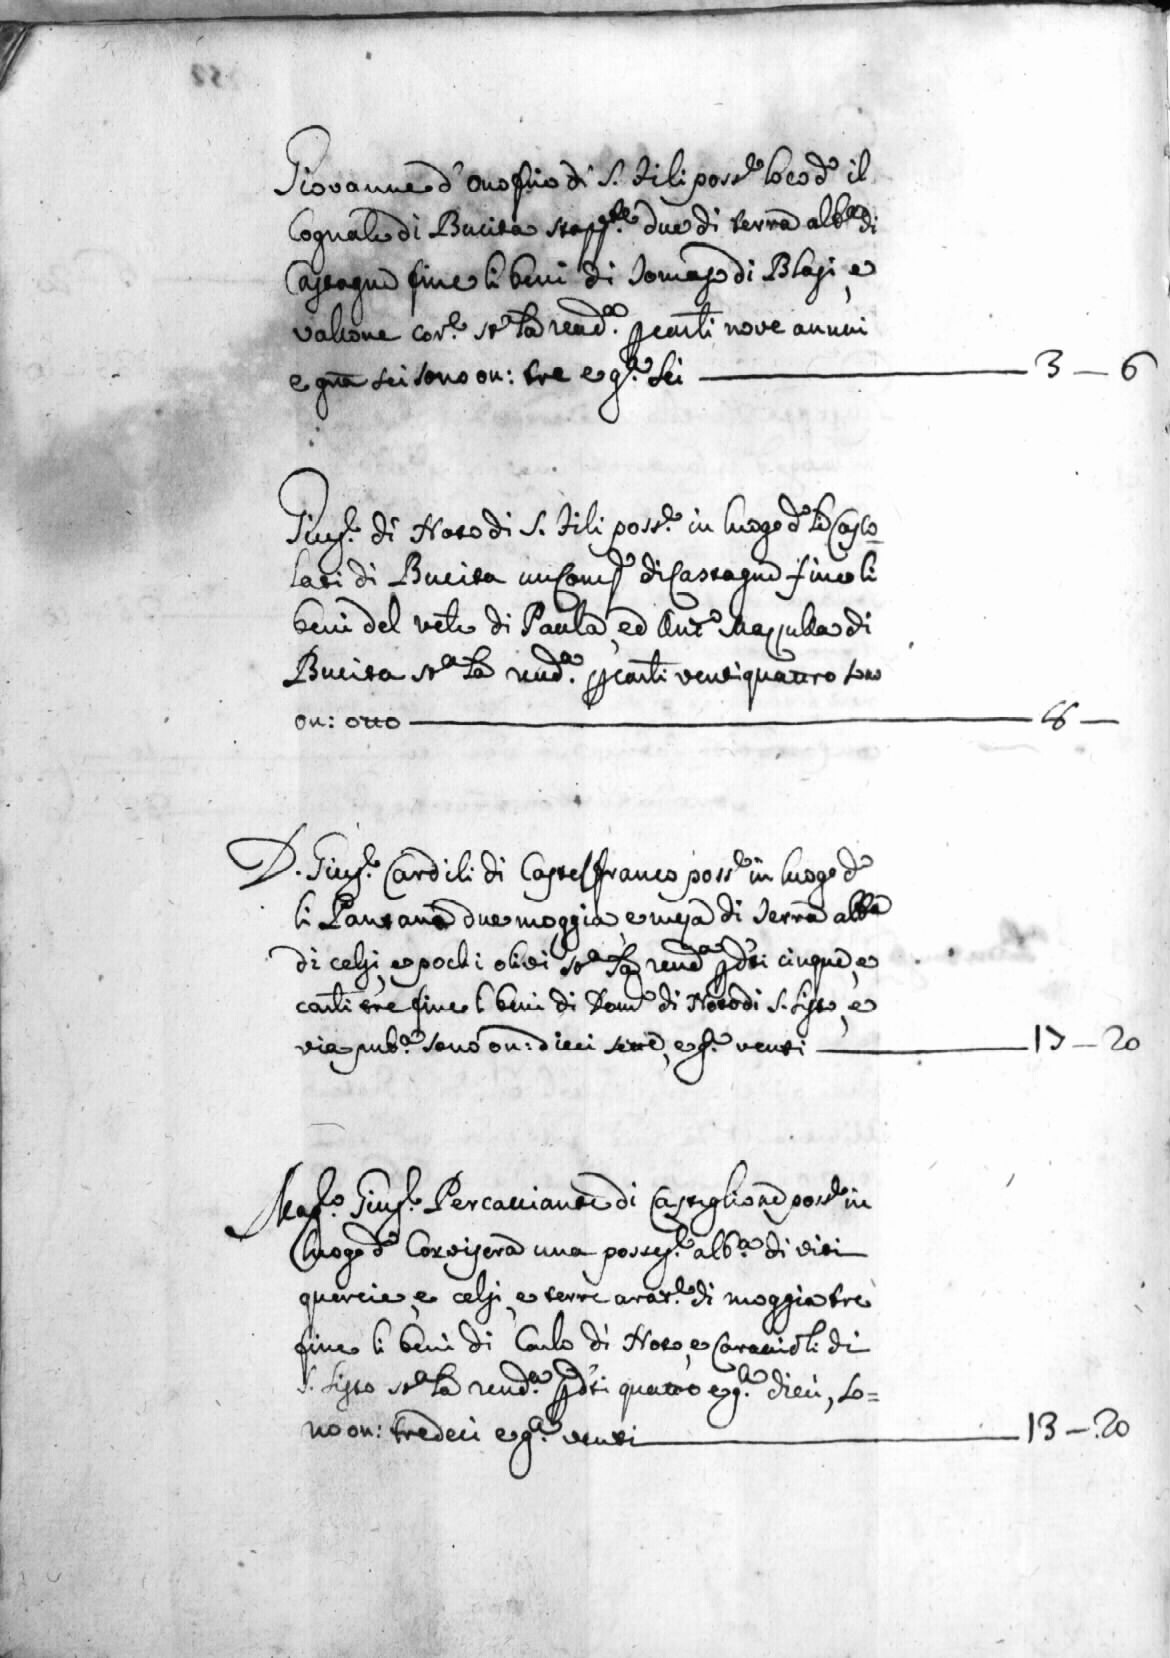 Giovanne d'Onofrio di S. Fili poss.e loco d.o il
Cognale di Bucita stopp.te due di terra alb.ta di
Castagne fine li beni di Tomaso di Blasi, e
vallone cor.e st.a la rend.a p carli nove annui
e gna sei sono on: tre e g.a sei 3 — 6
Gius.e di Noto di S. Fili poss.e in luogo d.o li Casto
lari di Bucita un Conf.o di Castagne fine li
beni del di Paula, ed Ant.o Mazzulla di
Bucita st.a la rend.a p carli ventiquattro sono
on: otto 8 —
D. Gius.e Cardili di Castelfranco poss.e in luogo d.o
li Pantana due moggia, e meza di Terra alb.ta
di celsi, e pochi olivi st.a la rend.a p d.ti cinque, e
carli tre fine li beni di Dom.o di Noto di S. Sisto, e
via pub.a sono on: dieci sette, e g.a venti 17 — 20
Mag.o Gius.e Percacciante di Castiglione poss.e in
luogo d.o Corvisera una possess.e alb.a di viti
quercie, e celsi, e terre arat.e di moggia tre
fine li beni di Carlo di Noto, e Caracioli di
S. Sisto st.a la rend.a p d.ti quattro e g.a dieci, so=
no on: tredeci e g.a venti 13 — 20